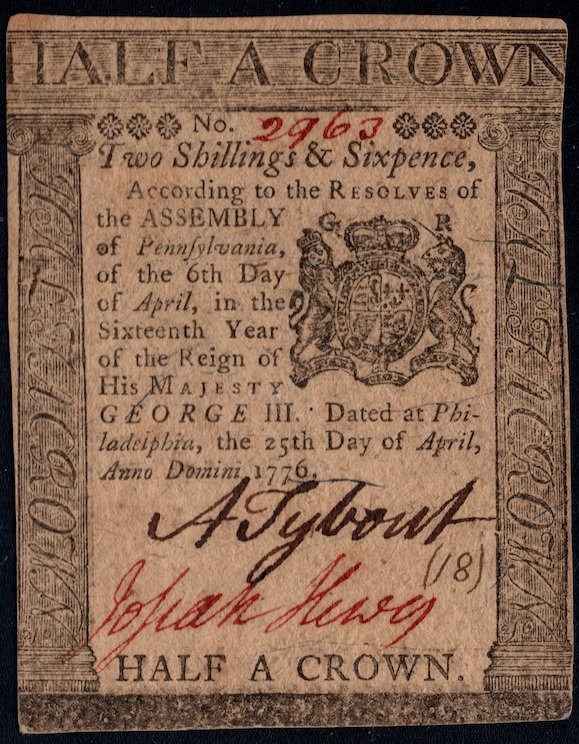 HALF A CROWN
No. 2963
Two Shillings & Sixpence,
According to the RESOLVES of
the ASSEMBLY
of Pennſylvania,
of the 6th Day
of April, in the
Sixteenth Year
of the Reign of
His MAJESTY
G R
GEORGE III. Dated at Phi-
ladelphia, the 25th Day of April,
Anno Domini 1776.
A Tybout
(18)
Joſiah Hewes
HALF A CROWN.
HALF A CROWN
HALF A CROWN
2/6
2/6
2/6